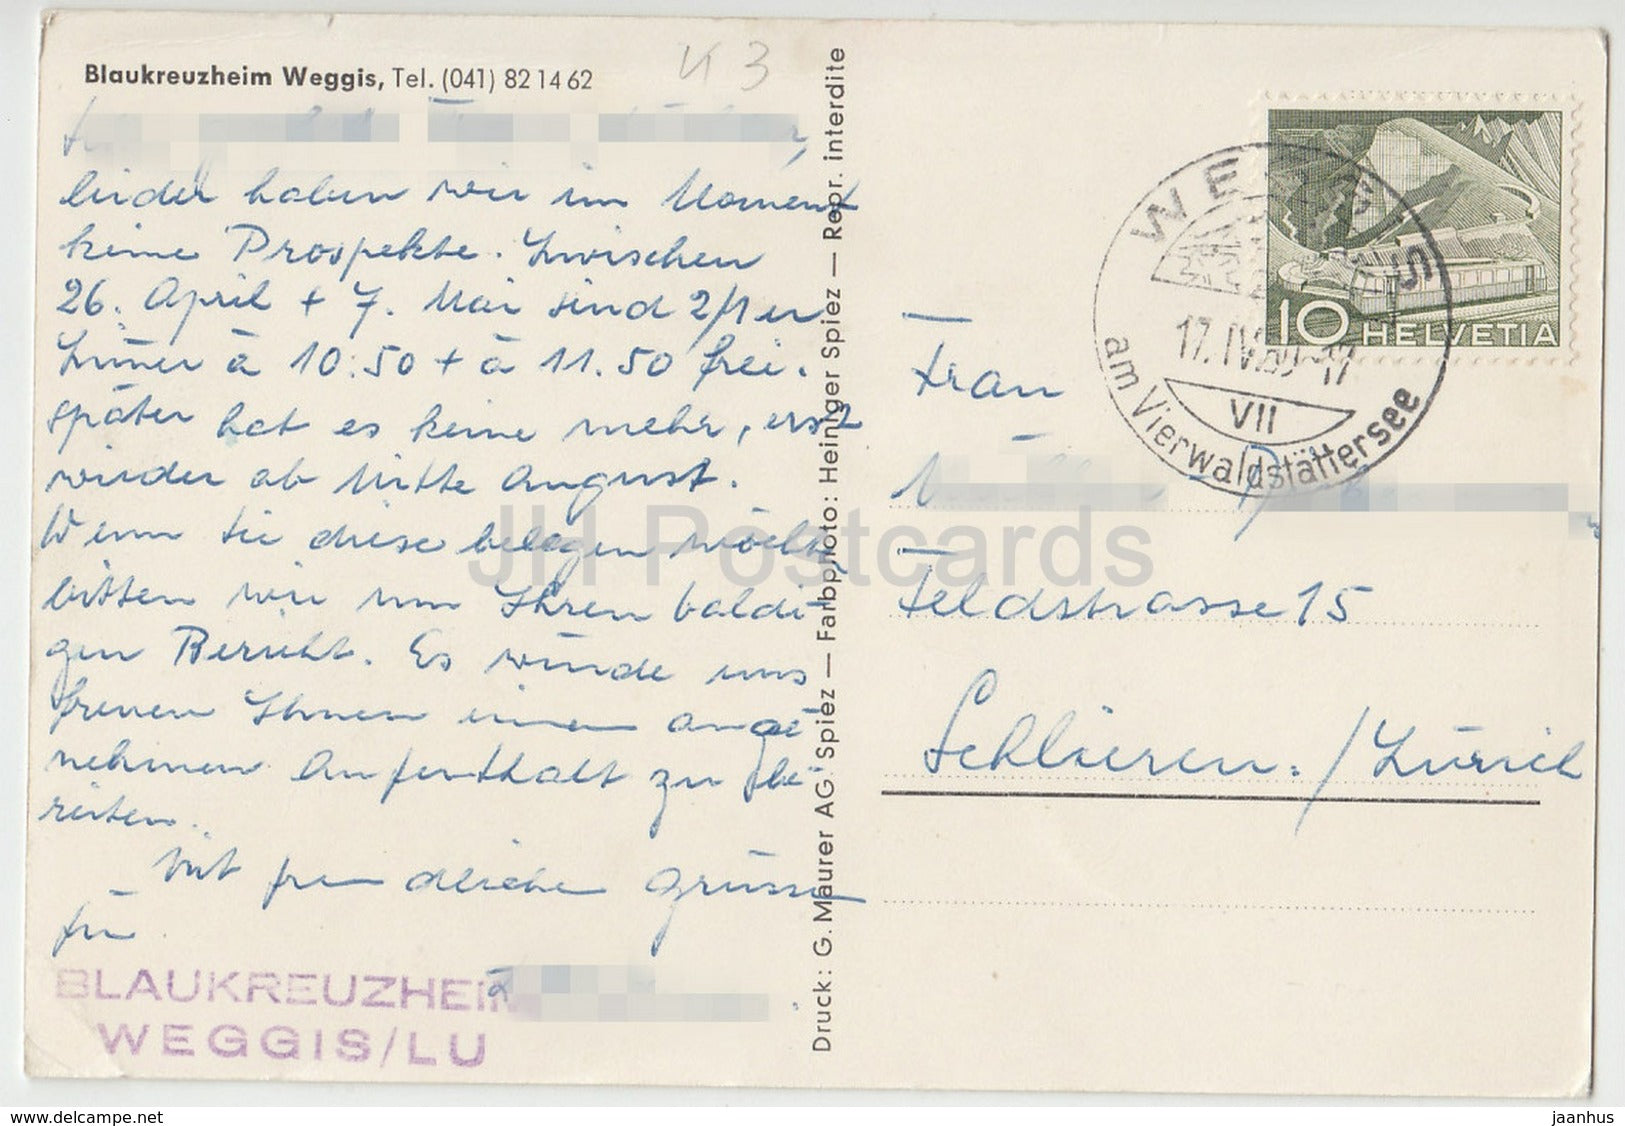 Blaukreuzheim Weggis, Tel. (041) 82 14 62
K 3
leider haben wir im Moment
keine Prospekte. Zwischen
26. April + 7. Mai sind 2/1er
Zimer à 10.50 + à 11.50 frei.
später hat es keine mehr, erst
wieder ab Mitte August.
Wenn Sie diese belegen möcht
bitten wir um Ihren baldi-
gen Bericht. Es würde uns
freuen Ihnen einen ange-
nehmen Aufenthalt zu be-
reiten.
Mit freundlichen Grüssen
für
BLAUKREUZHEIM
WEGGIS/LU
Druck: G. Maurer AG Spiez — Farbphoto: Heiniger Spiez — Repr. interdite
WEGGIS
17.IV.60-17
VII
am Vierwaldstättersee
10 HELVETIA
Frau
Feldstrasse 15
Schlieren./Zürich
JH Postcards
www.delcampe.net
jaanhus